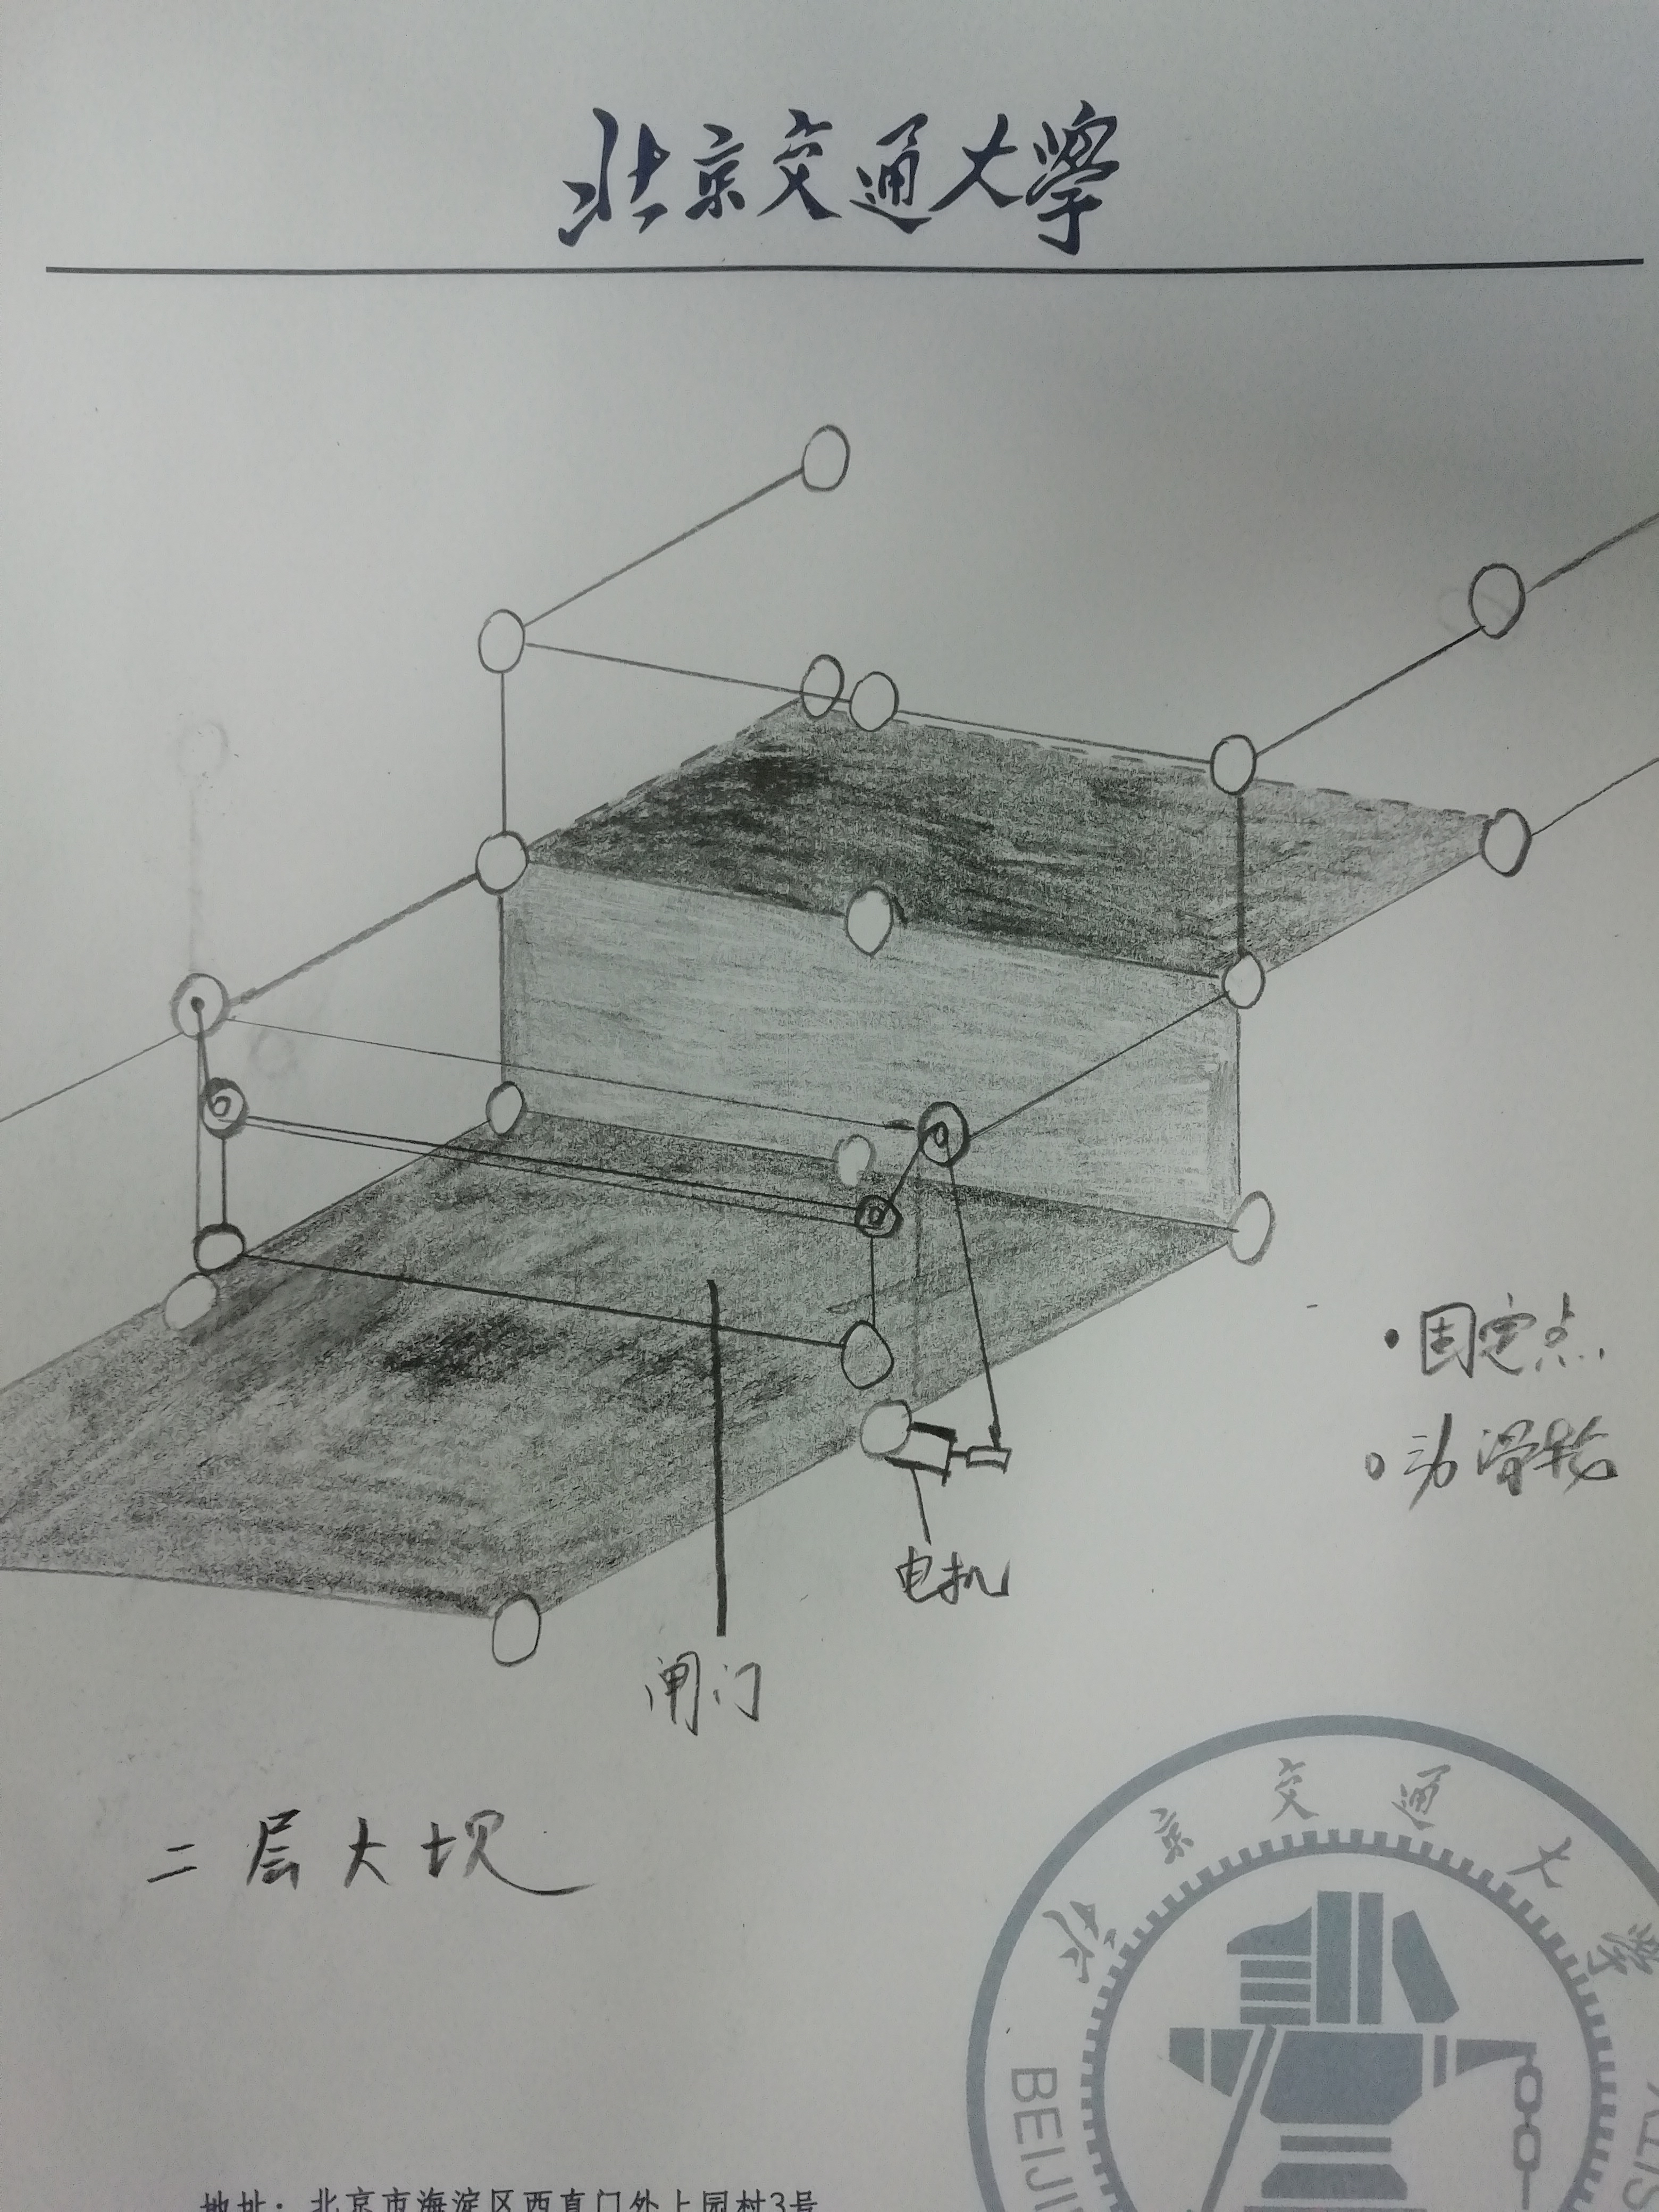 北京交通大學
• 固定点
o 动滑轮
电机
闸门
二层大坝
北京交通大学
BEIJI
地址：北京市海淀区西直门外上园村3号